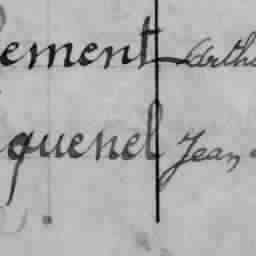 ement Arthu
quenel Jean